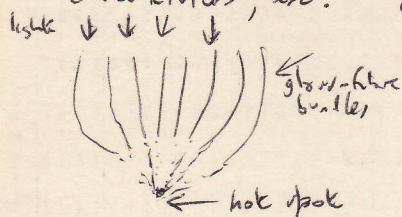 etc.
light
glass-fibre
bundles
hot spot